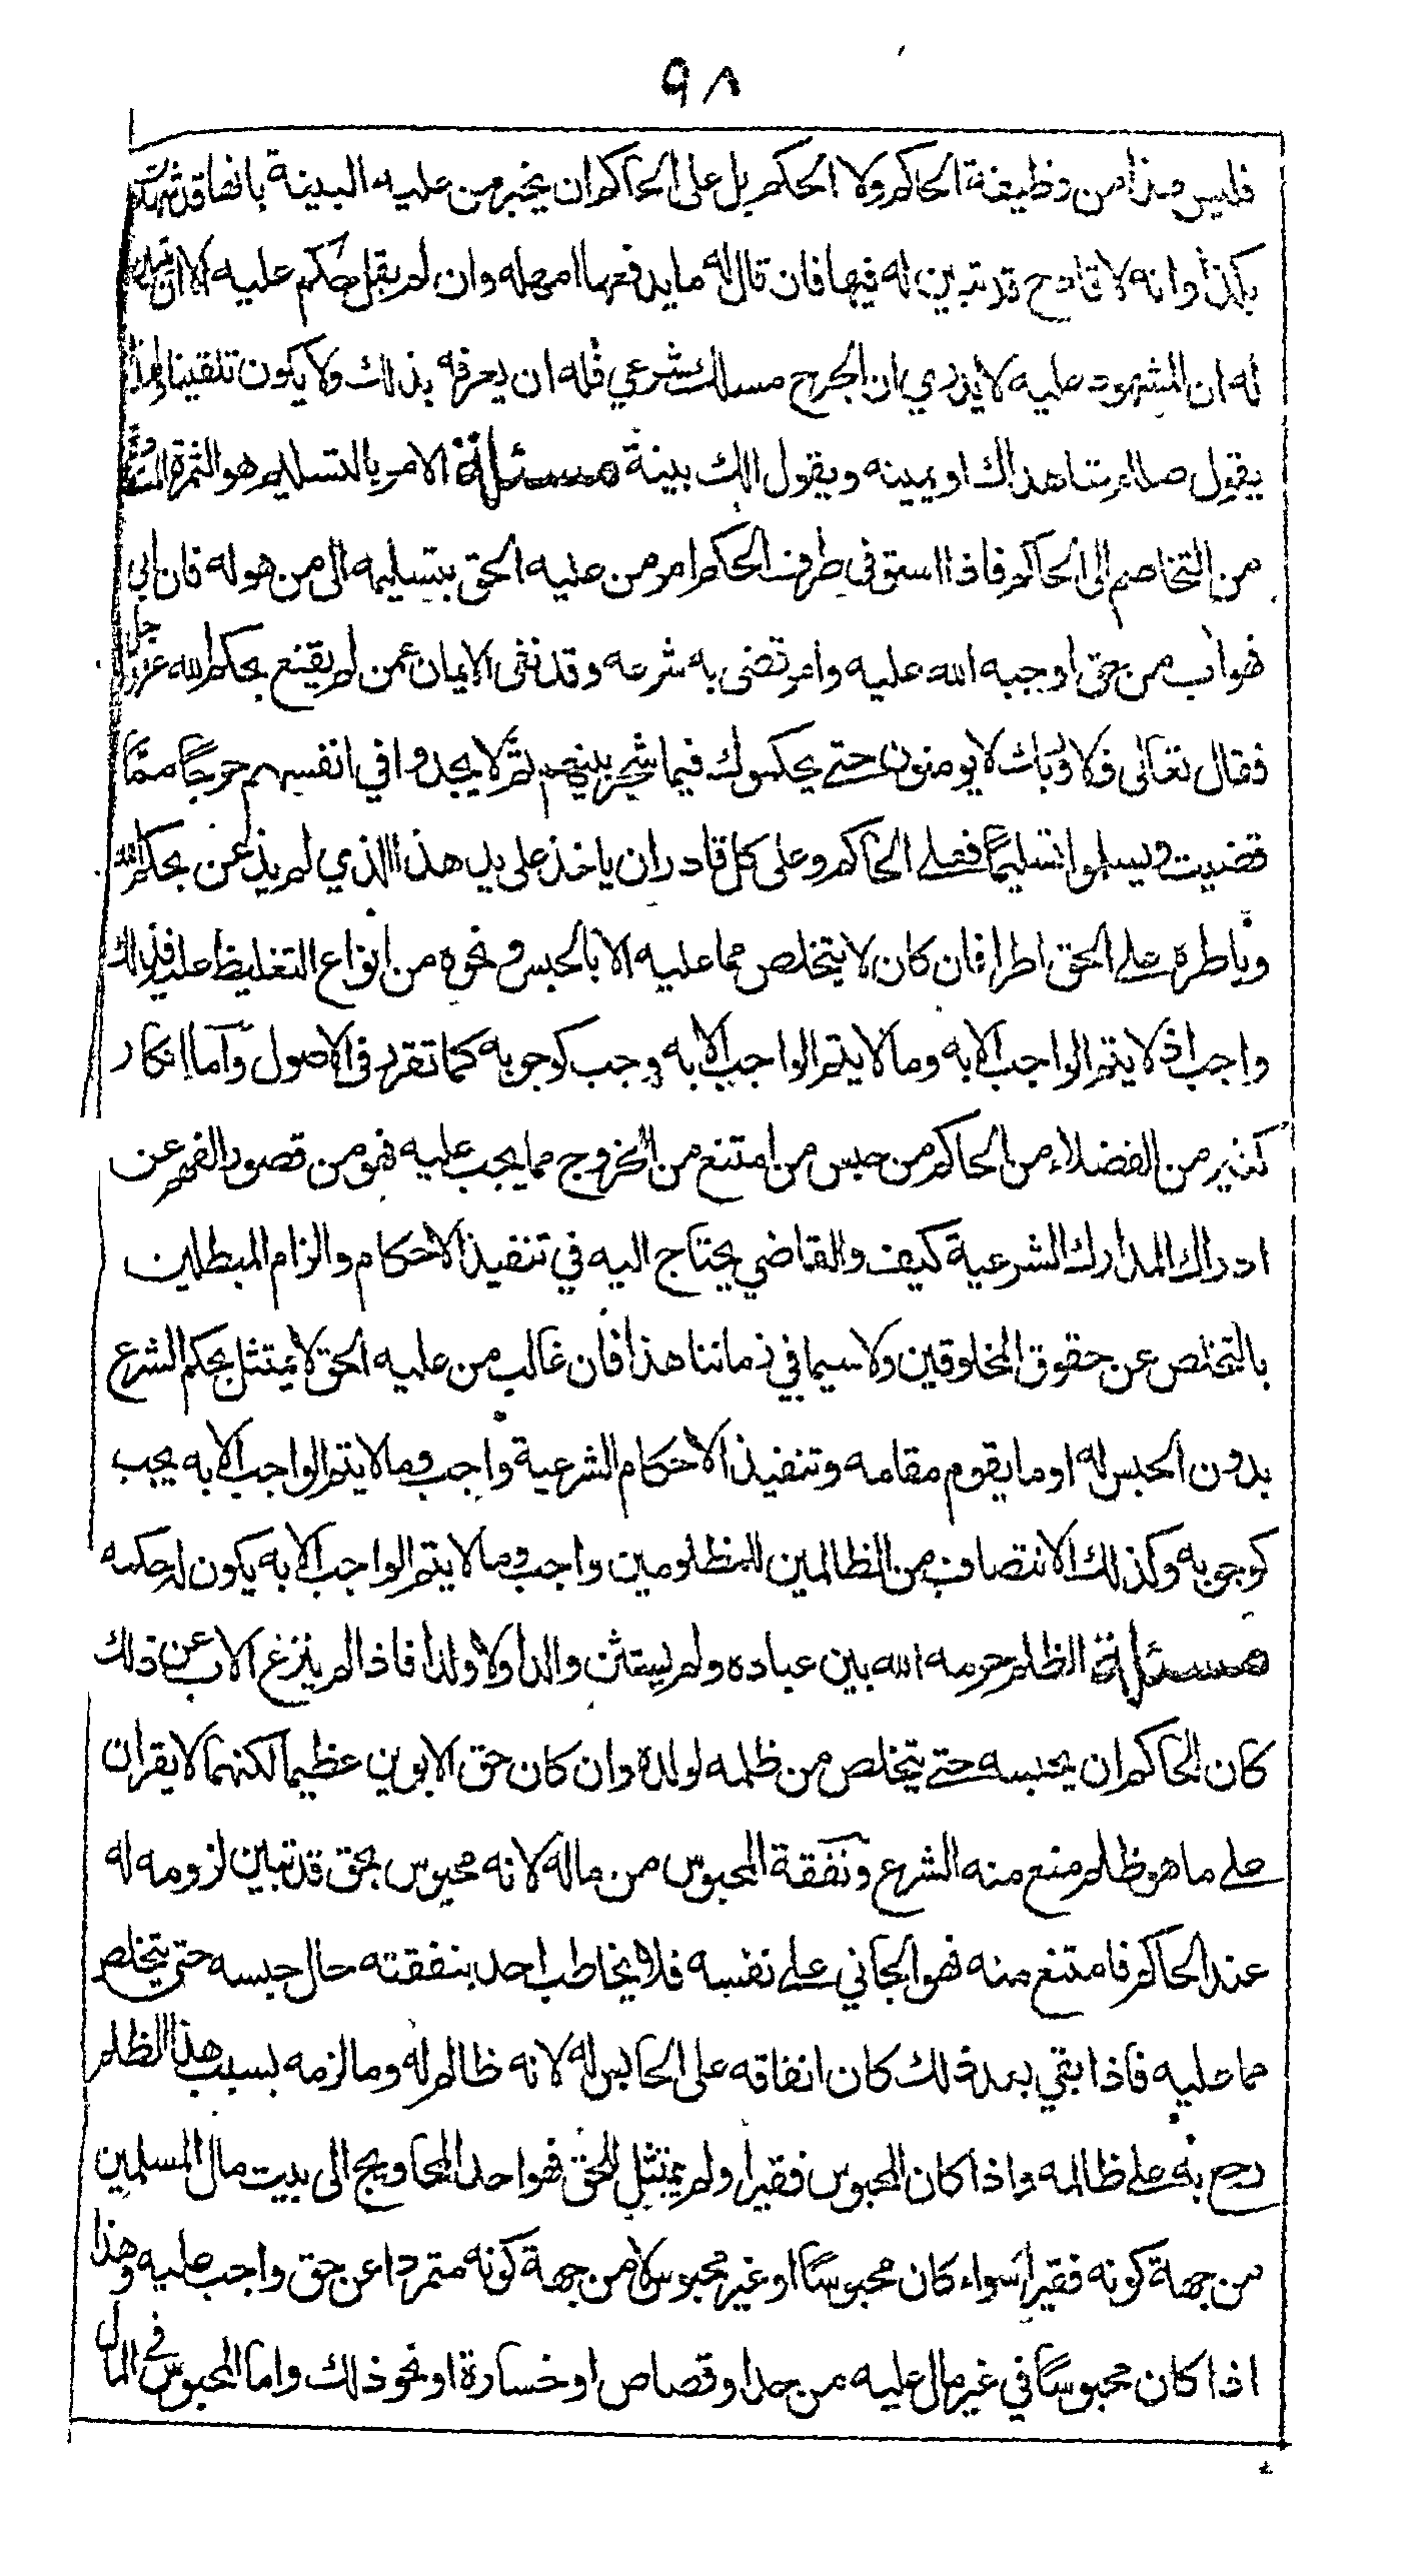 ٩٨
فليس هذا من وظيفة الحاكم ولا الحكم بل على الحاكم ان يخبر من عليه البينة بانها قد شهدت
بكذا وانه لا قادح قد تبين له فيها فان قال له ما يدفعها امهله وان لم يقبل حكم عليه الا ان تبين
له ان المشهود عليه لا يدري ان الجرح مسلك شرعي فله ان يعرفه بذلك ولا يكون تلقينا ولهذا
يقول صللم شاهداك او يمينه ويقول الك بينة مسئلة الامر بالتسليم هو الثمرة
من التخاصم الى الحاكم فاذا استوفى طرف الحاكم امر من عليه الحق بتسليمه الى من هو له فان ابى
فهو اب من حق اوجبه الله عليه وامر تضى به شرعه وقد نفى الايمان عمن لم يقنع بحكم الله عز وجل
فقال تعالى فلا وربك لا يومنون حتى يحكموك فيما شجر بينهم ثم لا يجدوا في انفسهم حرجًا ممّا
قضيت ويسلموا تسليمًا فعلى الحاكم وعلى كل قادر ان ياخذ على يد هذا الذي لم يذعن بحكم الله
وياطره على الحق اطرا فان كان لا يتخلص مما عليه الا بالحبس ونحوه من انواع التغليظ عليه فذلك
واجب اذ لا يتم الواجب الا به وما لا يتم الواجب الا به وجب كوجوبه كما تقرر في الاصول وآما انكار
كثير من الفضلاء من الحاكم من حبس من امتنع من الخروج مما يجب عليه فهو من قصور الفهم عن
ادراك المدارك الشرعية كيف والقاضي يحتاج اليه في تنفيذ الاحكام والزام المبطلين
بالتخلص عن حقوق المخلوقين ولا سيما في زماننا هذا فان غالب من عليه الحق لا يمتثل بحكم الشرع
بدون الحبس له او ما يقوم مقامه وتنفيذ الاحكام الشرعية واجب وما لا يتم الواجب الا به يجب
كوجوبه وكذلك الانتصاف من الظالمين للمظلومين واجب وما لا يتم الواجب الا به يكون له حكمه
مسئلة الظلم حرمه الله بين عباده ولم يستثن والدا ولا ولدا فاذا لم ينزغ الاب عن ذلك
كان الحاكم ان يحبسه حتى يتخلص من ظلمه لولده وان كان حق الابوين عظيما لكنهما لا يقران
على ما هو ظلم منع منه الشرع ونفقة المحبوس من ماله لانه محبوس بحق قد تبين لزومه له
عند الحاكم فامتنع منه فهو الجاني على نفسه فلا يخاطب احد بنفقته حال حبسه حتى يتخلص
مما عليه فاذا بقي بعد ذلك كان انفاقه على الحابس له لانه ظالم له وما لزمه بسبب هذا الظلم
رجع به على ظالمه واذا كان المحبوس فقيرا ولم يمتثل للحق فهو احد المحاويج الى بيت مال المسلمين
من جهة كونه فقيرا سواء كان محبوسًا او غير محبوس لا من جهة كونه متمردا عن حق واجب عليه وهذا
اذا كان محبوسًا في غير مال عليه من حد او قصاص او خسارة او نحو ذلك واما المحبوس في المال